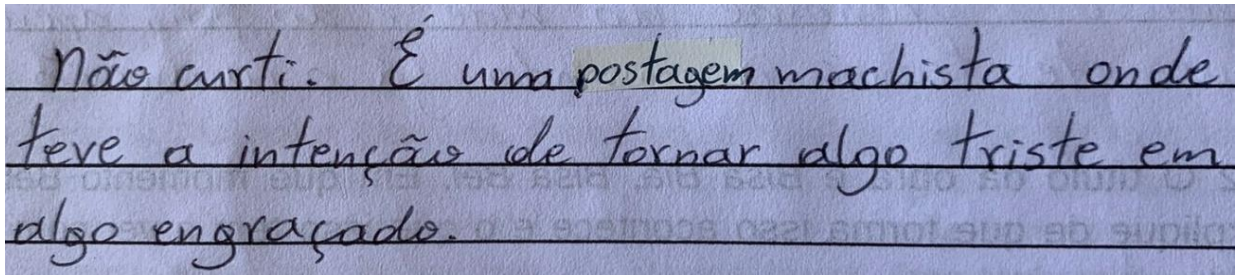 não curti. É uma postagem machista onde
teve a intenção de tornar algo triste em
algo engraçado.